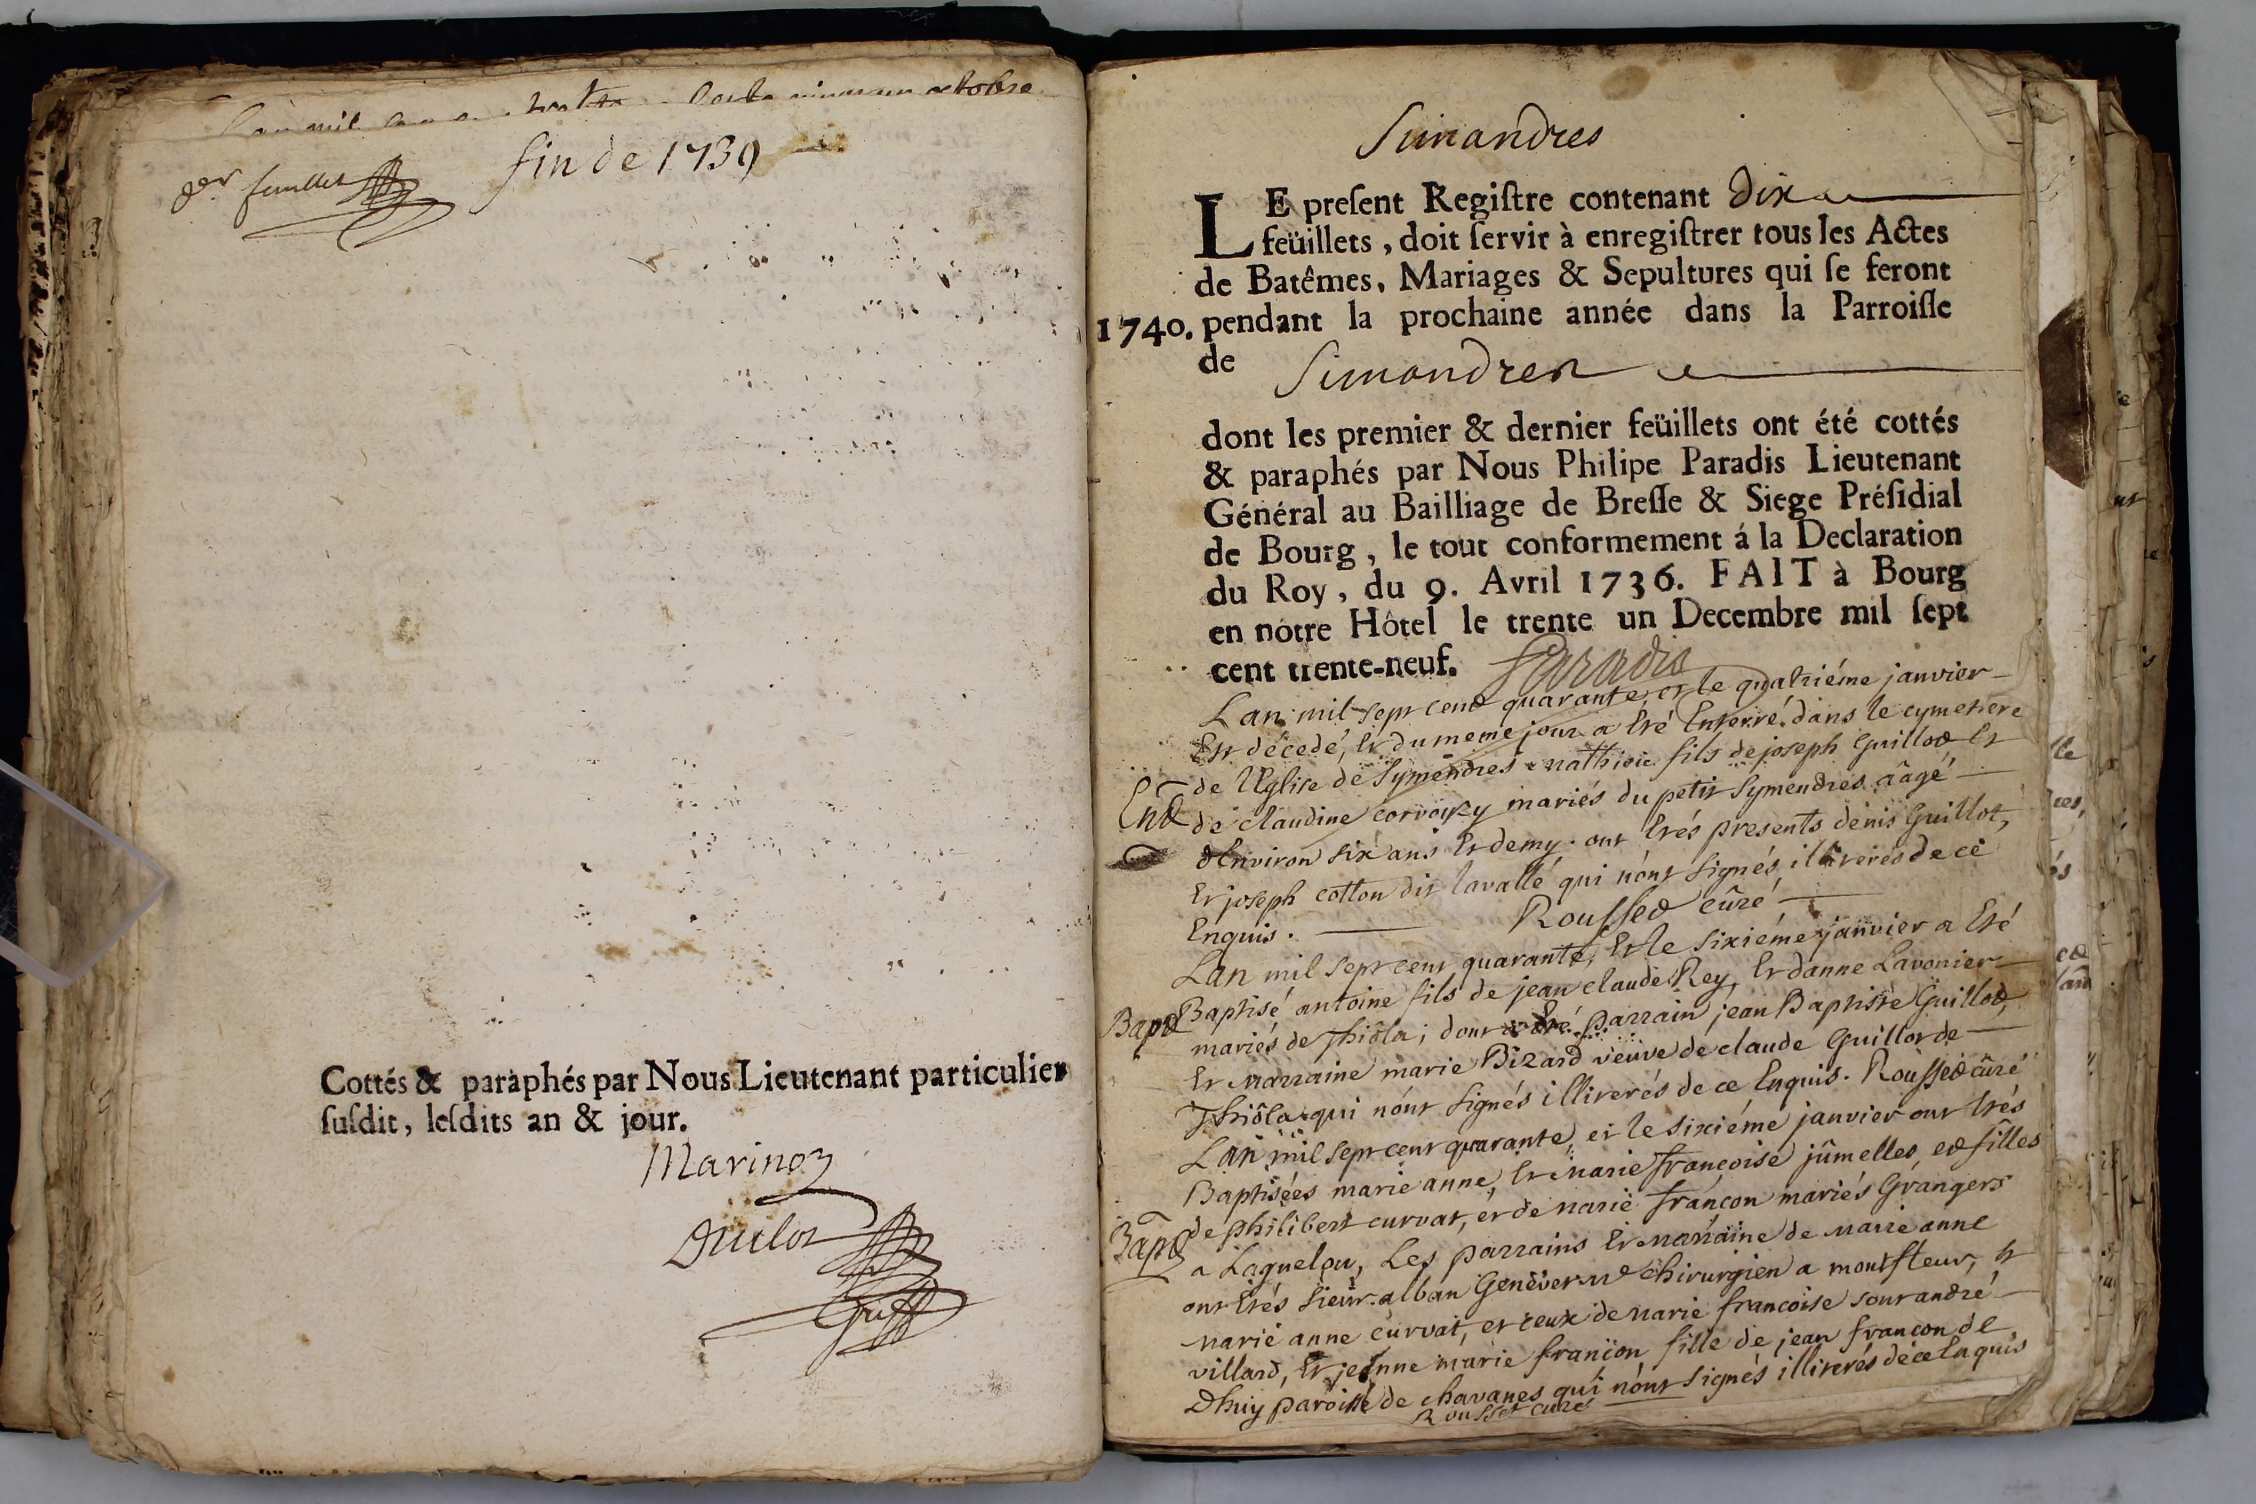 Lan mil octobre
der feuillet
fin de 1739
Cottés & paraphés par Nous Lieutenant particulier
ſuſdit, leſdits an & jour.
Marinon
Duclos
Simandres
LE preſent Regiſtre contenant dix
feüillets, doit ſervir à enregiſtrer tous les Actes
de Batêmes, Mariages & Sepultures qui ſe feront
1740. pendant la prochaine année dans la Parroiſſe
de Simandres
dont les premier & dernier feüillets ont été cottés
& paraphés par Nous Philipe Paradis Lieutenant
Général au Bailliage de Breſſe & Siege Préſidial
de Bourg, le tout conformement á la Declaration
du Roy, du 9. Avril 1736. FAIT à Bourg
en nôtre Hôtel le trente un Decembre mil ſept
cent trente-neuf. Paradis
Lan mil sept cent quarante, et le quatriéme janvier
Est décedé, Et du meme jour a Eté Enterré dans le cymetiere
de l'Eglise de Symendres mathieu fils de joseph Guillot Et
Ent de claudine corvoisy mariés du petit Symendres âagé
d'Environ six ans Et demy. ont Etés presents denis Guillot,
Et joseph cotton dit lavallé qui n'ont signés illiterés de ce
Enquis. Rousset cûré
Lan mil sept cent quarante, Et le sixiéme janvier a Eté
Bapt Baptisé antoine fils de jean claude Rey, Et d'anne Lavonier
mariés de Thiôla; dont a Eté parrain jean Baptiste Guillot,
Et marraine marie Bizard veuve de claude Guillot de
Thiôla qui n'ont signés illiterés de ce Enquis. Rousset cûré
Lan mil sept cent quarante, et le sixiéme janvier ont Etés
Baptisées marie anne, Et marie françoise jûmelles, et filles
Bapt de philibert curvat, et de marie françon mariés Grangers
a Laquelou, Les parrains Et marraine de marie anne
ont Etés sieur alban Genêver me chirurgien a montfleur, Et
marie anne curvat, et ceux de marie francoise sont andré
villard, Et jeanne marie françon fille de jean françon de
Dhuy paroisse de chavanes qui n'ont signés illiterés de ce Enquis
Rousset curé